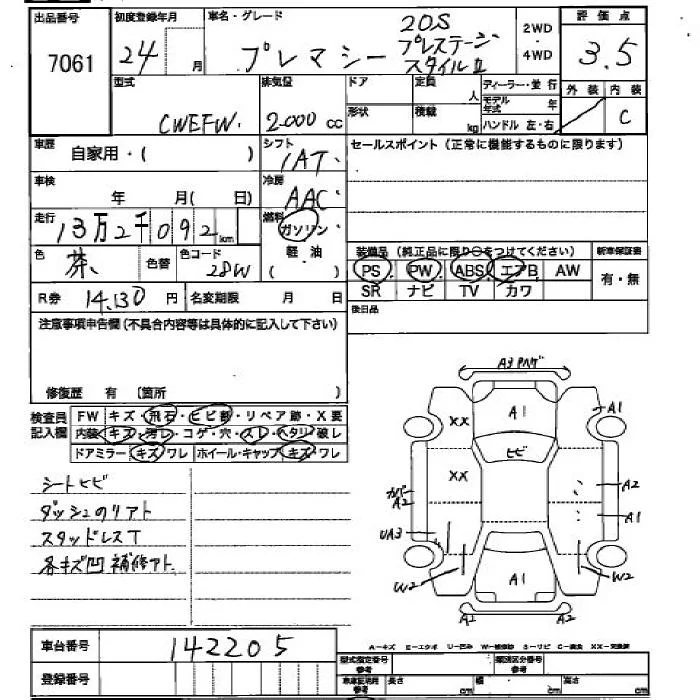 出品番号 7061
初度登録年月 24 月
車名・グレード プレマシー 20S プレステージ スタイルⅡ
2WD・4WD
評価点 3.5
型式 CWEFW.
排気量 2.000 cc
ドア 形状
定員 人
積載 kg
ディーラー・並行
モデル年式 年
ハンドル 左・右
外装 内装 C
車歴 自家用・( )
シフト IAT.
セールスポイント(正常に機能するものに限ります)
車検 年 月( 日)
冷房 AAC
走行 13万2千092 km
燃料 ガソリン・軽油 ( )
色 茶、 色替 色コード 28W
装備品(純正品に限り○をつけてください)
新車保証書 有・無
PS PW ABS エアB AW
SR ナビ TV カワ
R券 14,130 円 名変期限 月 日
後日品
注意事項申告欄(不具合内容等は具体的に記入して下さい)
修復歴 有 〔箇所 〕
検査員記入欄
FW キズ・飛石・ヒビ部・リペア跡・X要
内装 キズ・汚レ・コゲ・穴・スレ・ヘタリ・破レ
ドアミラー キズ・ワレ ホイール・キャップ キズ・ワレ
シートヒビ
ダッシュのリアト
スタッドレスT
各キズ凹 補修アト.
A3
A1
XX
A1
ヒビ
XX
A2
A2
A1
UA3
W2
A1
W2
A2
A2
車台番号 142205
登録番号
A-キズ E-エクボ U-凹み W-補修跡 S-サビ C-腐食 XX-交換済
型式指定番号 参考
類別区分番号 参考
車庫証明用 参考 長さ cm 幅 cm 高さ cm